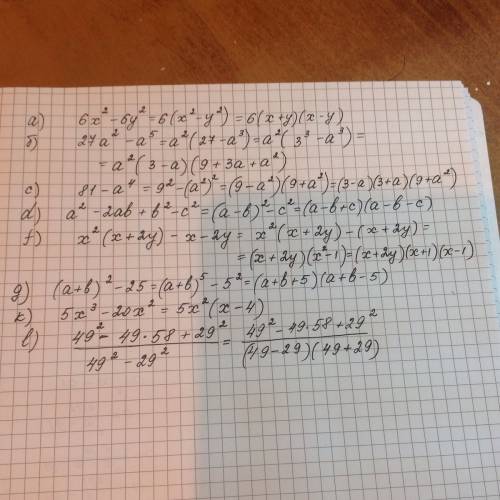 а) 6x² - 6y² = 6(x² - y²) = 6(x+y)(x-y)
б) 27a² - a⁵ = a²(27 - a³) = a²(3³ - a³) =
= a²(3-a)(9+3a+a²)
c) 81 - a⁴ = 9² - (a²)² = (9-a²)(9+a²) = (3-a)(3+a)(9+a²)
d) a² - 2ab + b² - c² = (a-b)² - c² = (a-b+c)(a-b-c)
f) x²(x+2y) - x - 2y = x²(x+2y) - (x+2y) =
= (x+2y)(x²-1) = (x+2y)(x+1)(x-1)
g) (a+b)² - 25 = (a+b)⁵ - 5² = (a+b+5)(a+b-5)
k) 5x³ - 20x² = 5x²(x-4)
l) (49² - 49·58 + 29²)/(49² - 29²) = (49² - 49·58 + 29²)/((49-29)(49+29))